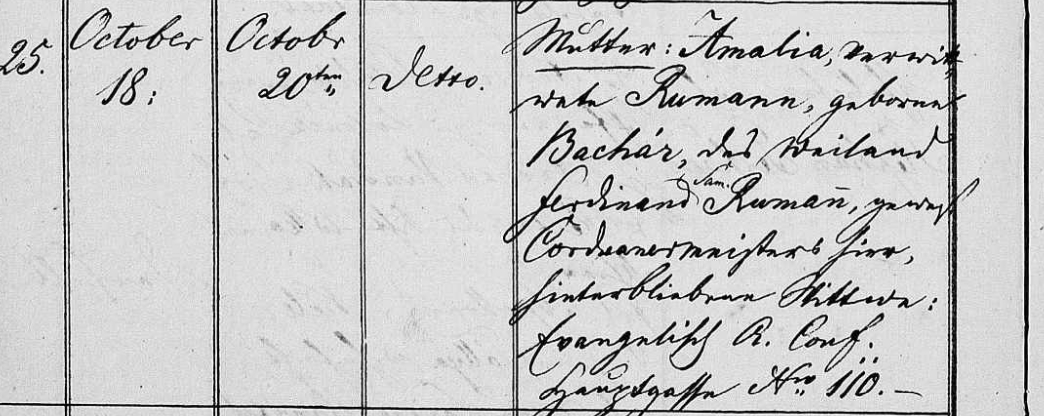 25.
October
18:
Octobr
20ten
Detto.
Mutter: Amalia, verwitt-
wete Rumann, geborne
Bachár, des weiland
Ferdinand Sam. Rumañ, gewes.
Corduanermeisters hier,
hinterbliebene Wittwe:
Evangelisch A. Conf.
Hauptgasse Nro 110. —